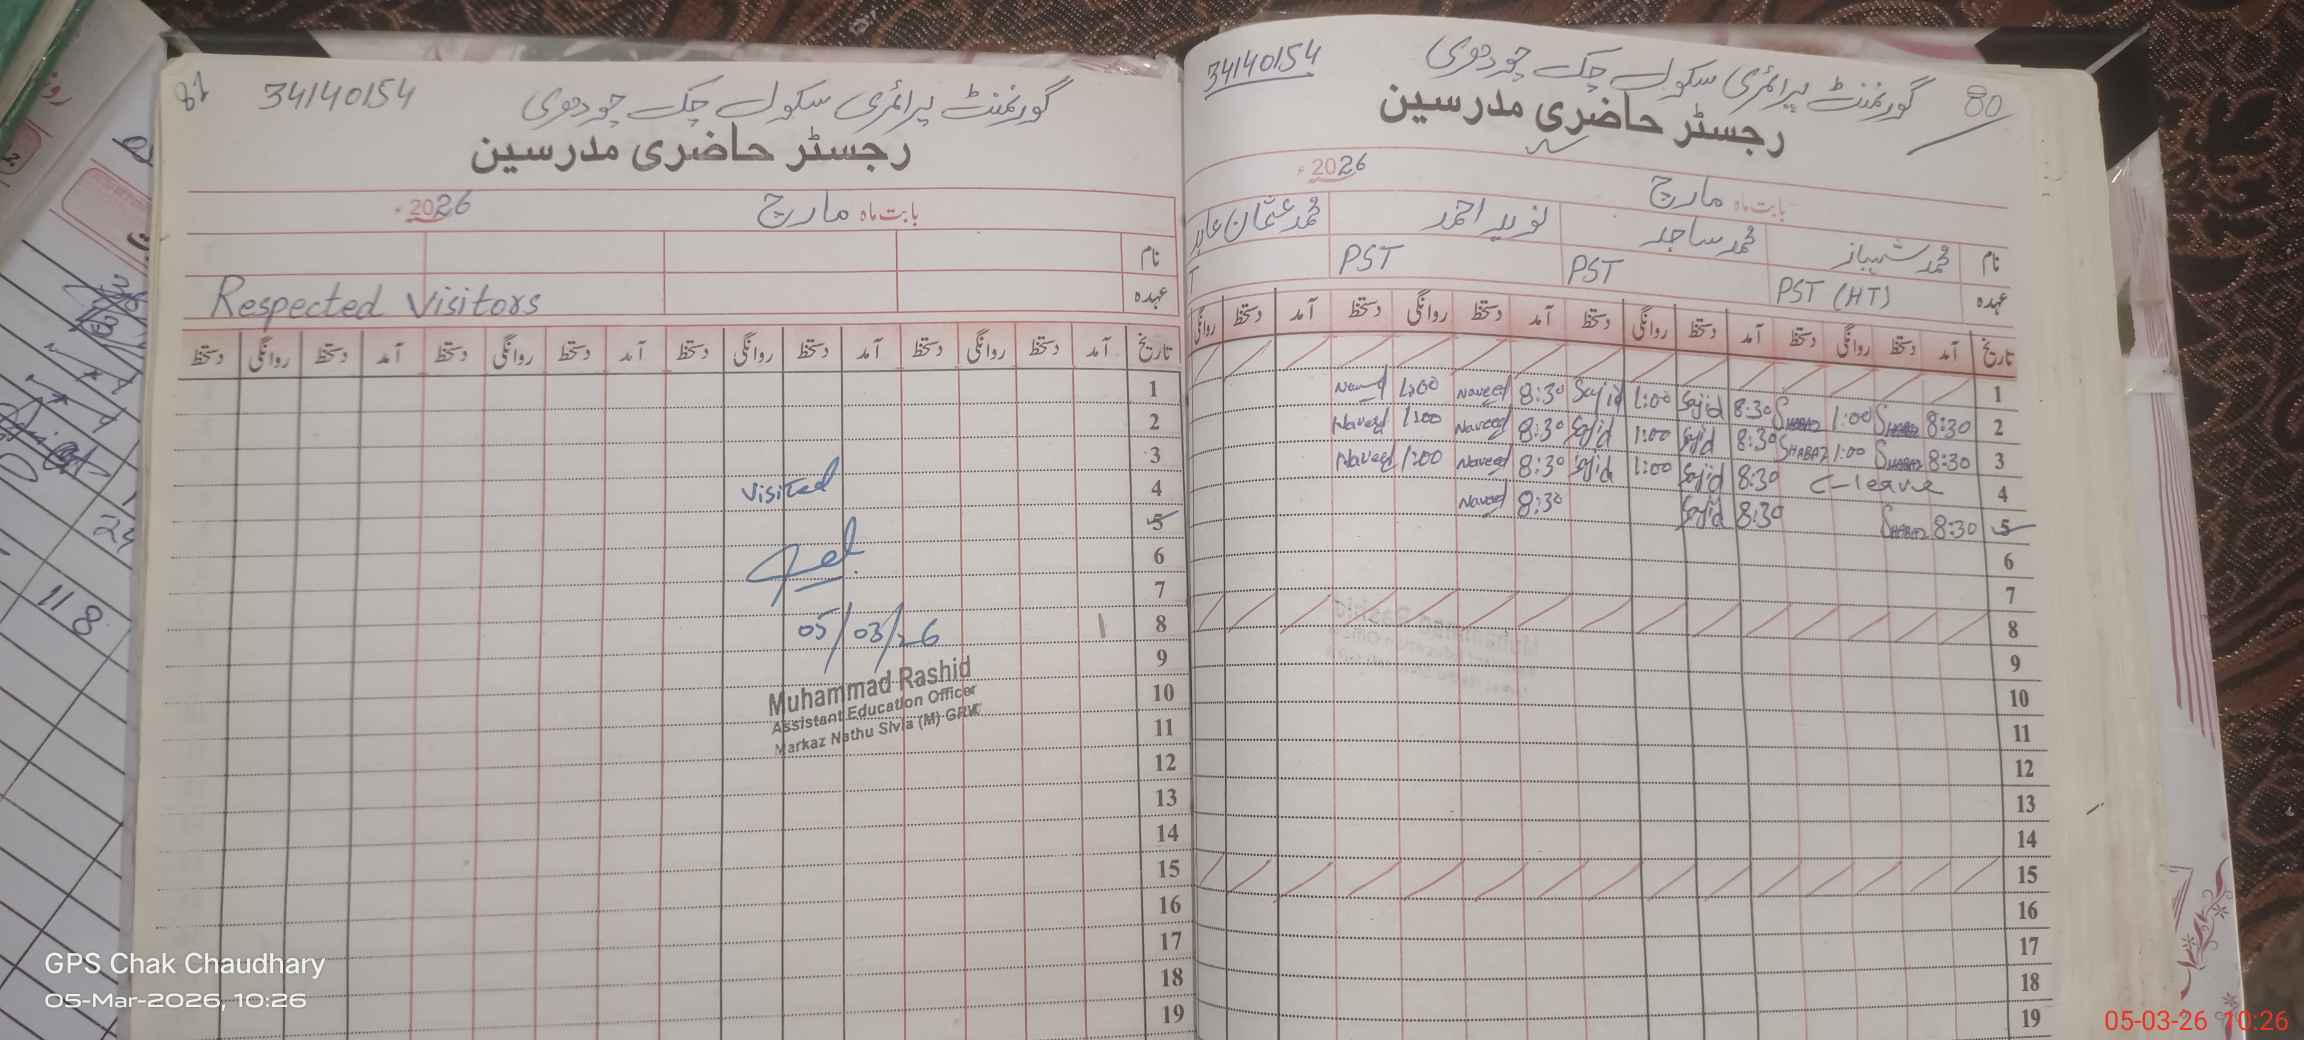 81 34140154 گورنمنٹ پرائمری سکول چک چودھری
رجسٹر حاضری مدرسین
بابت ماہ مارچ 2026ء
نام
عہدہ
Respected Visitors
تاریخ آمد دستخط روانگی دستخط آمد دستخط روانگی دستخط آمد دستخط روانگی دستخط آمد دستخط روانگی دستخط
1
2
3
Visited
4
5
6
7
05/03/26
8
9
Muhammad Rashid
Assistant Education Officer
Markaz Nathu Sivia (M) GRW
10
11
12
13
14
15
16
17
18
19
34140154 گورنمنٹ پرائمری سکول چک چودھری 80
رجسٹر حاضری مدرسین
بابت ماہ مارچ 2026ء
نام محمد شہباز محمد ساجد نوید احمد محمد عثمان عابد
عہدہ PST (HT) PST PST T
تاریخ آمد دستخط روانگی دستخط آمد دستخط روانگی دستخط آمد دستخط روانگی دستخط آمد دستخط روانگی
1
Naveed 1:00 Naveed 8:30 Sajid 1:00 Sajid 8:30 SHABAZ 1:00 SHABAZ 8:30 2
Naveed 1:00 Naveed 8:30 Sajid 1:00 Sajid 8:30 SHABAZ 1:00 SHABAZ 8:30 3
Naveed 1:00 Naveed 8:30 Sajid 1:00 Sajid 8:30 C-leave 4
Naveed 8:30 Sajid 8:30 SHABAZ 8:30 5
6
7
8
9
10
11
12
13
14
15
16
17
18
19
24
11 8
GPS Chak Chaudhary
05-Mar-2026, 10:26
05-03-26 10:26